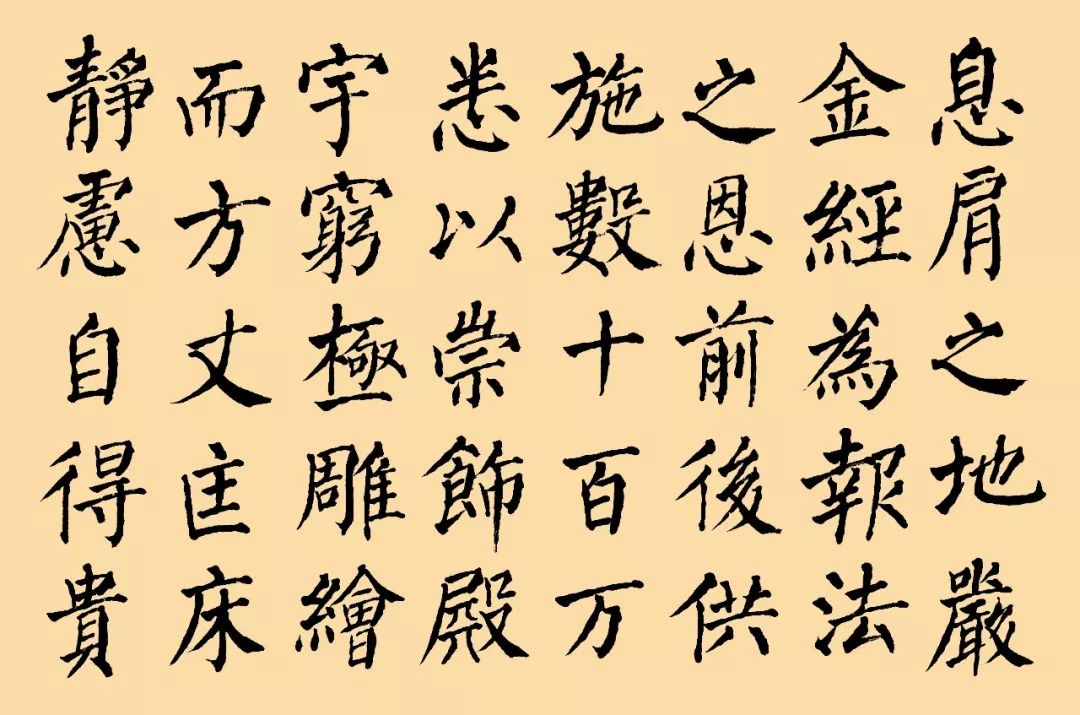 息肩之地嚴
金經為報法
之恩前後供
施數十百万
悉以崇飾殿
宇窮極雕繪
而方丈匡床
靜慮自得貴